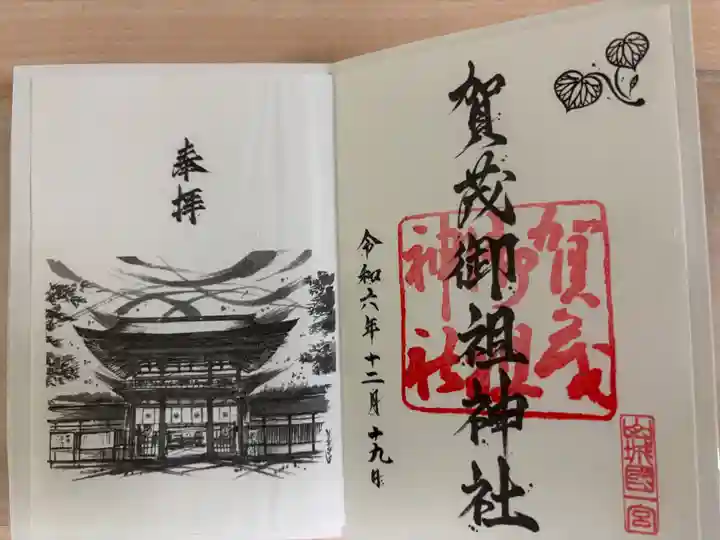 賀茂御祖神社
賀茂
御祖
神社
山城國
一宮
令和六年十二月十九日
奉拝